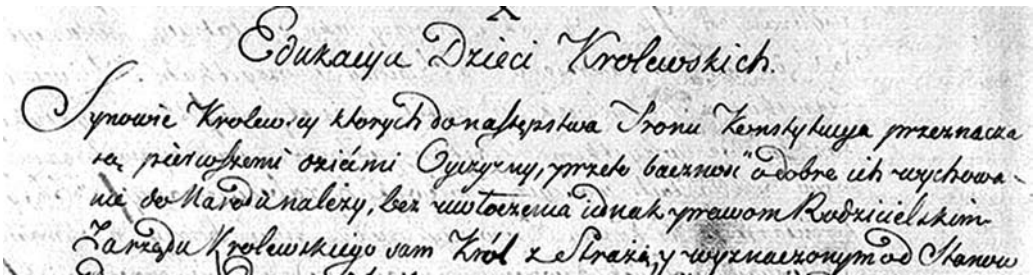 X
Edukacya Dzieci Krolewskich.
Synowie Krolewscy ktorych do następstwa Tronu Konstytucya przeznacza
są pierwszemi dziećmi Oyczyzny, przeto baczność o dobre ich wychowa-
nie do Narodu należy, bez uwłoczenia iednak prawom Rodzicielskim
Zarządu Krolewskiego sam Król z Strażą, y wyznaczonym od Stanow